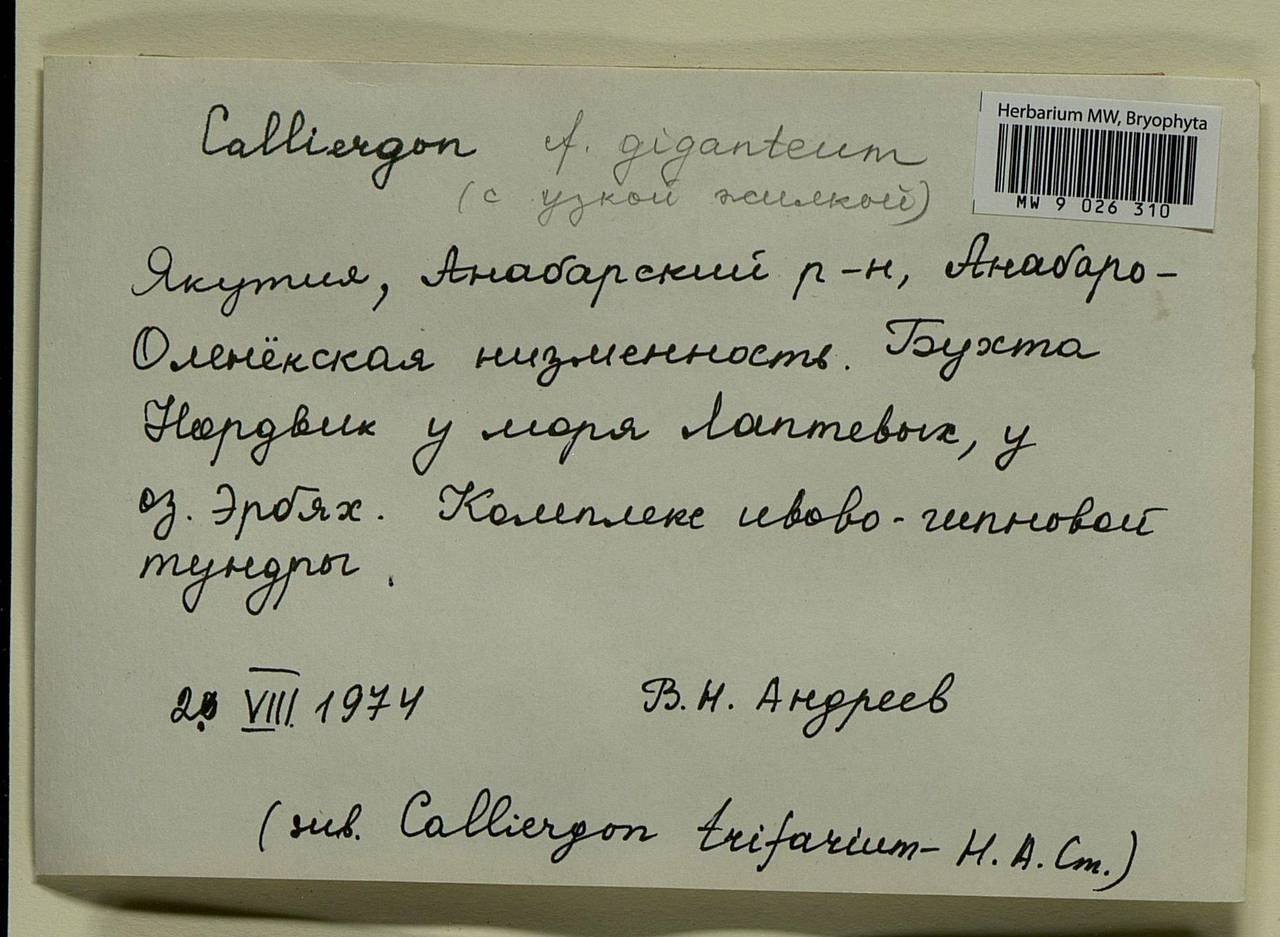 Herbarium MW, Bryophyta
MW 9 026 310
Calliergon cf. giganteum
(с узкой жилкой)
Якутия, Анабарский р-н, Анабаро-
Оленёкская низменность. Бухта
Нордвик у моря Лаптевых, у
оз. Эрбях. Комплекс ивово-гипновой
тундры.
VIII 1974
В. Н. Андреев
Calliergon trifarium - Н. А. Ст.)